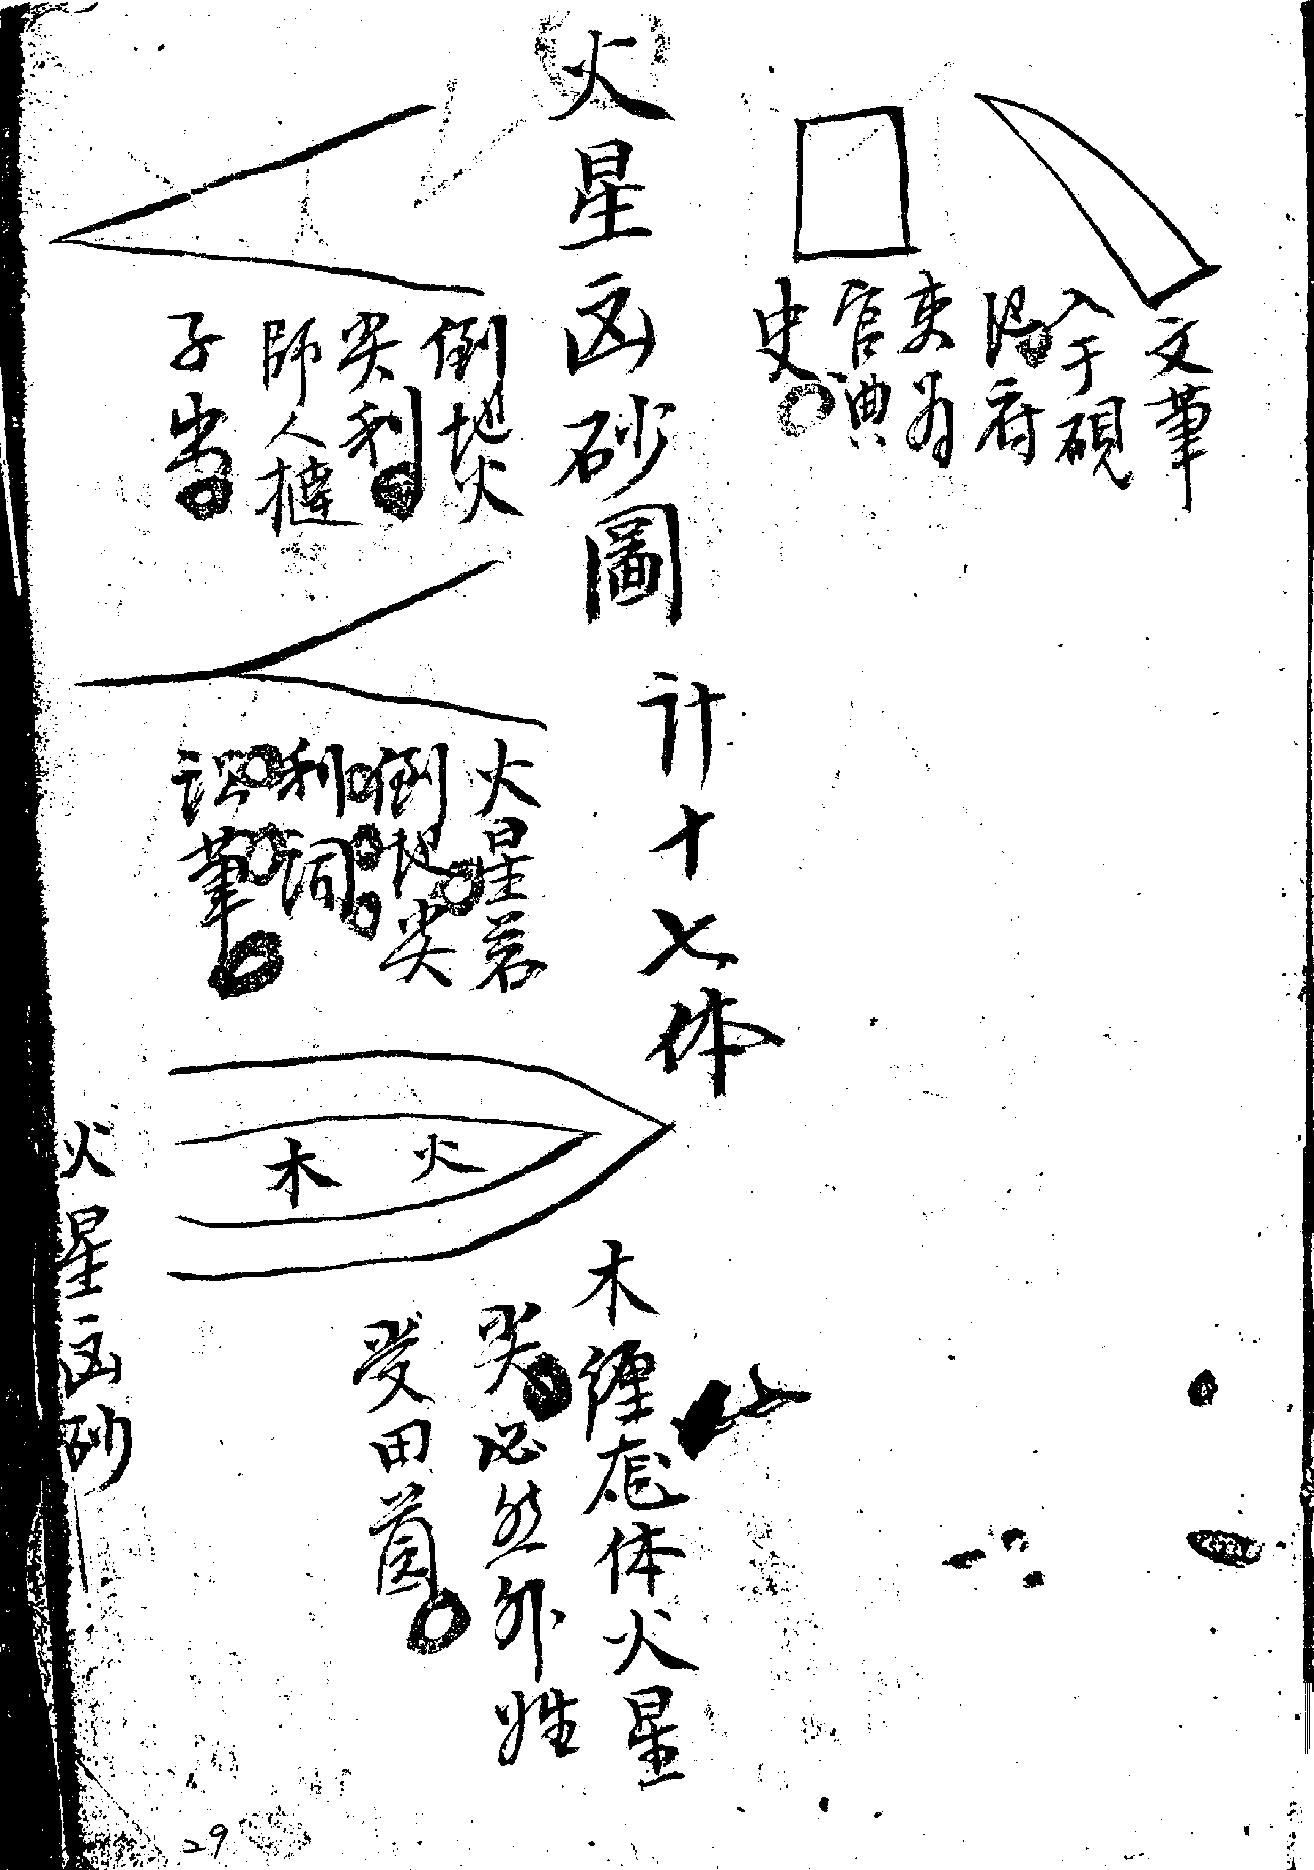 文筆
入于硯
得府
吏為
官典
史
火星凶砂圖
計十七体
倒地火
尖利
師人撻
子
火星若
倒地尖
利詞
訟筆
火
木
木纏
体火星
尖必然外姓
受田
火星凶砂
29